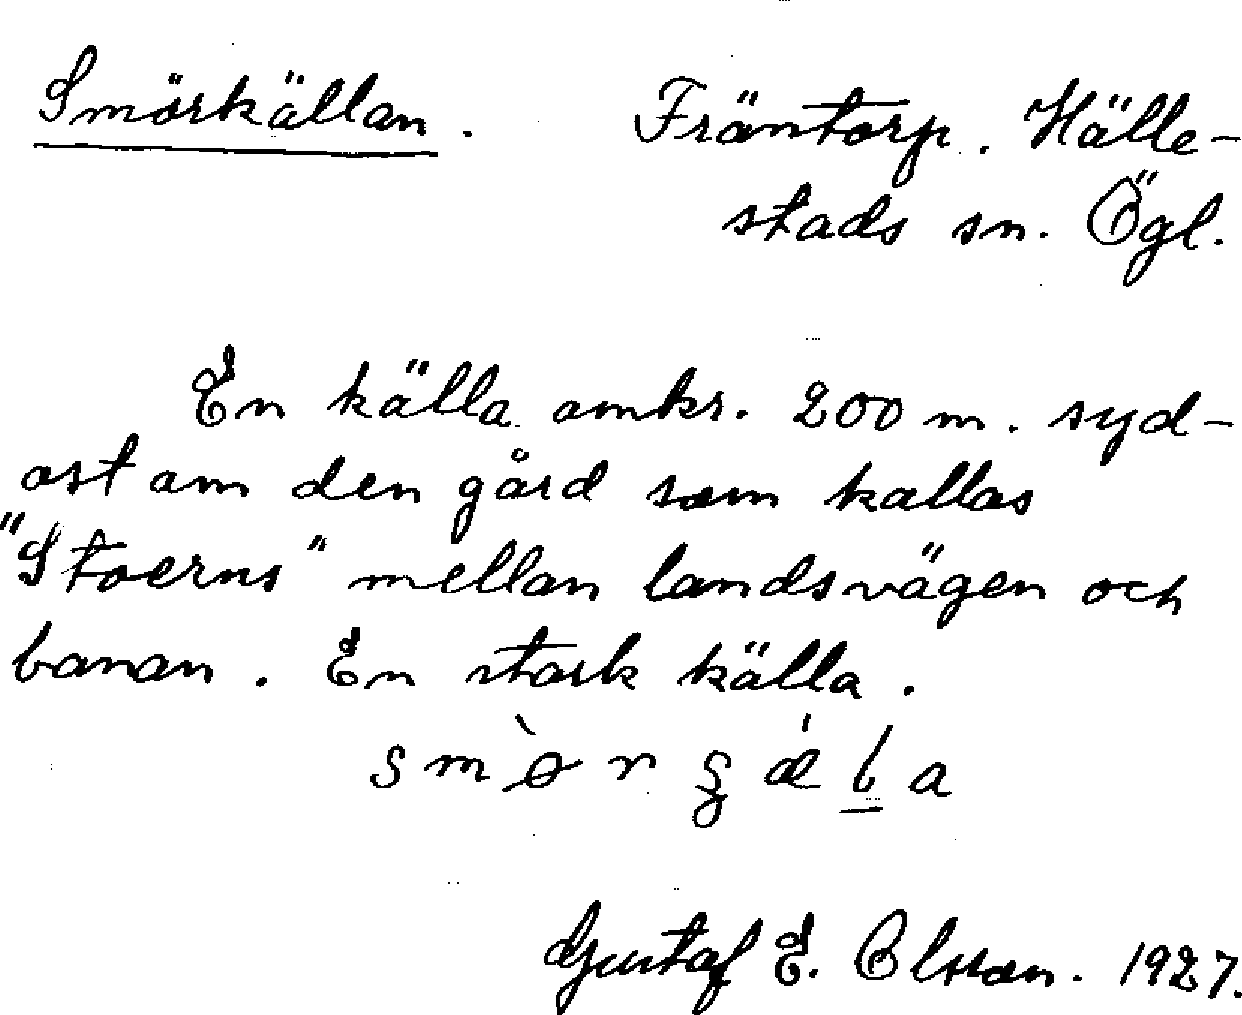 Smörkällan. Fräntorp. Hälle-
stads sn. Ögl.
En källa omkr. 200 m. syd-
ost om den gård som kallas
"Stoerns" mellan landsvägen och
banan. En stark källa.
Gustaf E. Olsson. 1927.